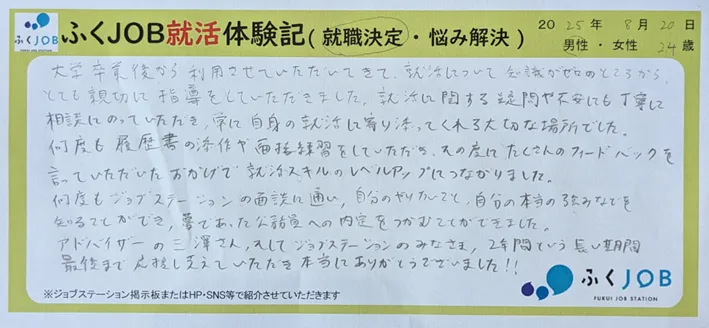 ふくJOB
FUKUI JOB STATION
ふくJOB就活体験記(就職決定・悩み解決)
2025年 8月20日
男性・女性 24歳
大学卒業後から利用させていただいてきて、就活について知識がゼロのところから、
とても親切に指導をしていただきました。就活に関する疑問や不安にも丁寧に
相談にのっていただき、常に自身の就活に寄り添ってくれる大切な場所でした。
何度も履歴書の添削や面接練習をしていただき、その度にたくさんのフィードバックを
言っていただいたおかげで就活スキルのレベルアップにつながりました。
何度もジョブステーションの面談に通い、自分のやりたいこと、自分の本当の強みなどを
知ることができ、夢であった公務員への内定をつかむことができました。
アドバイザーの三澤さん、そしてジョブステーションのみなさま、2年間という長い期間
最後まで応援し支えていただき本当にありがとうございました!!
※ジョブステーション掲示板またはHP・SNS等で紹介させていただきます
ふくJOB
FUKUI JOB STATION